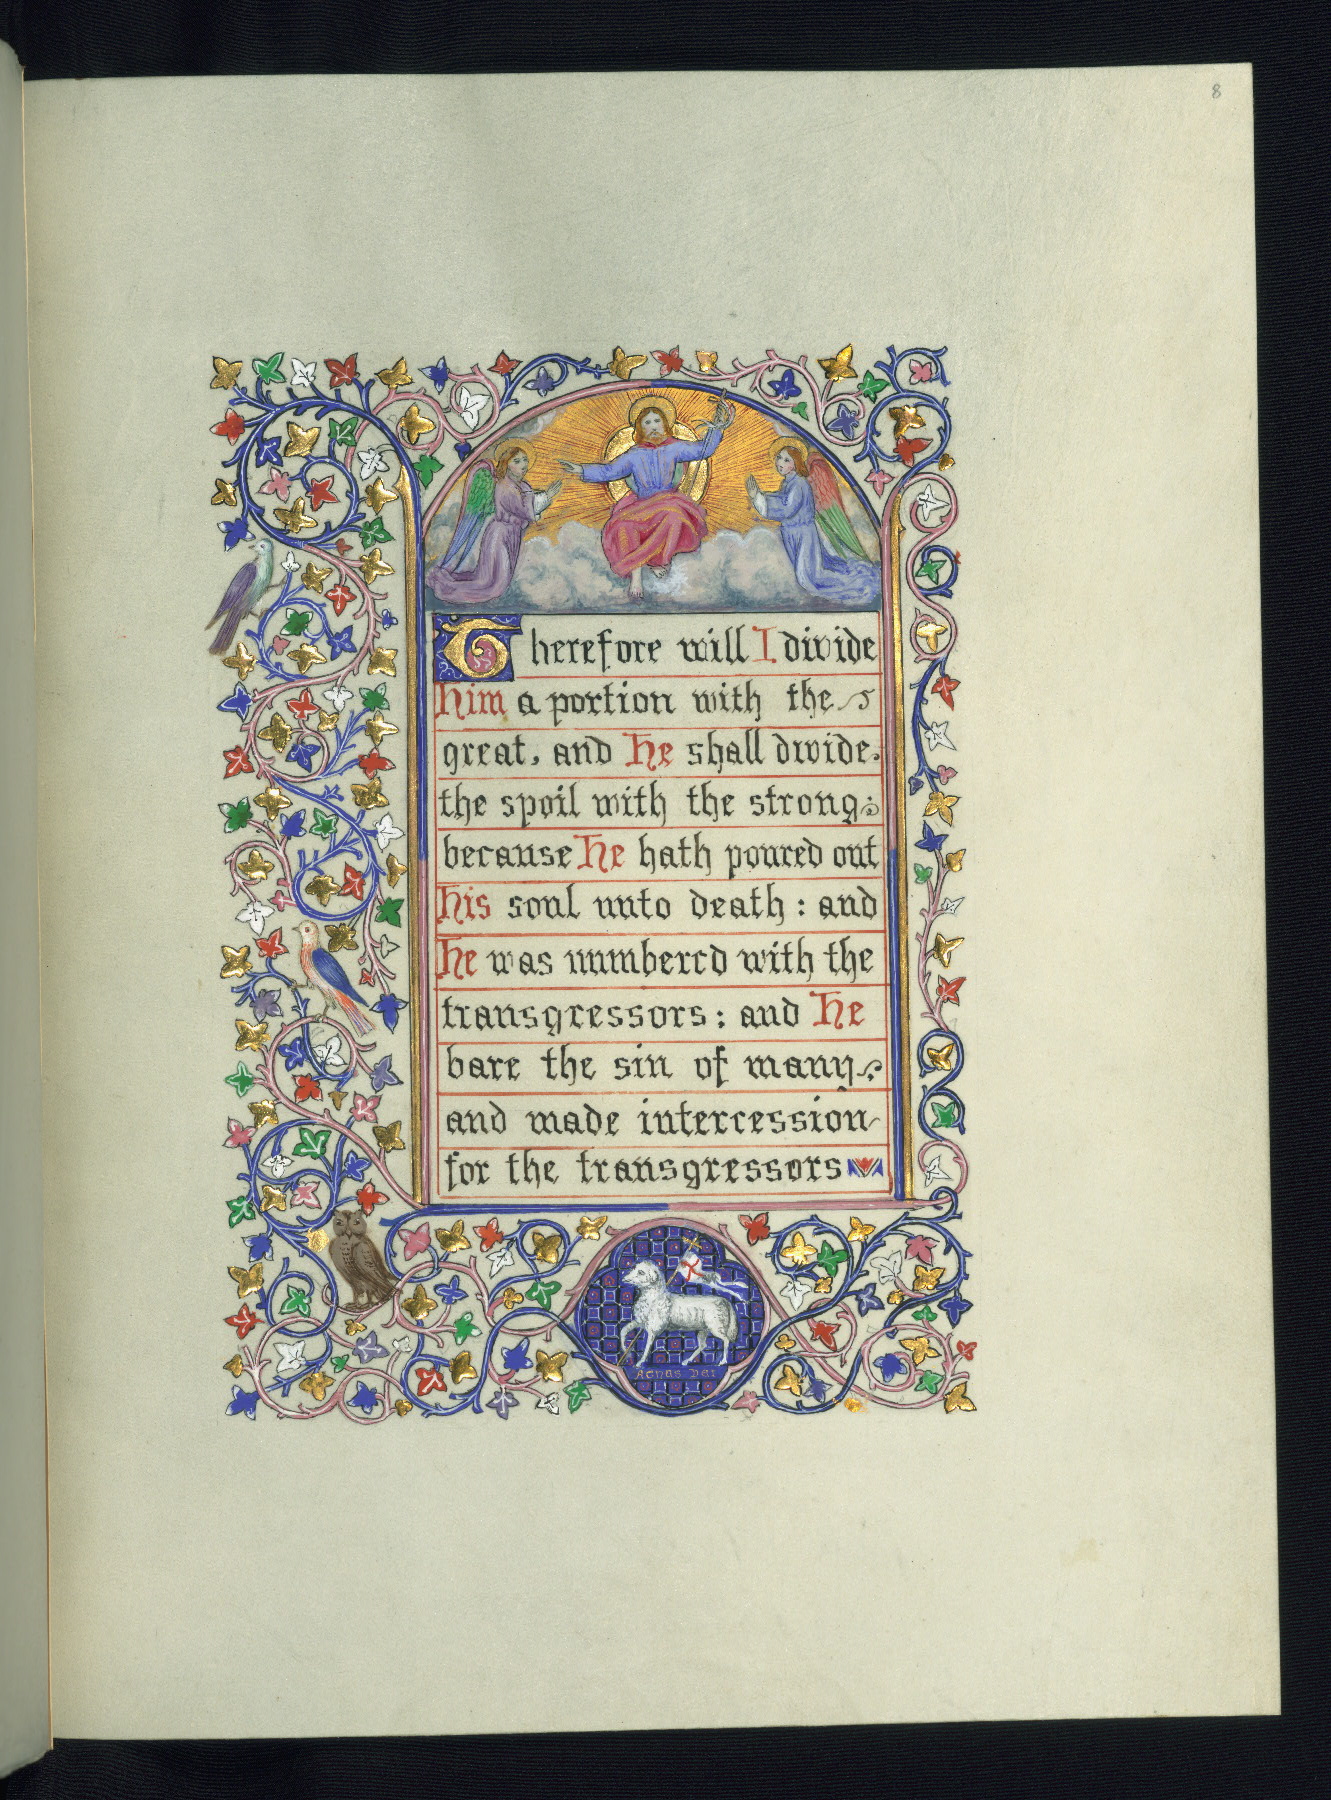 8
Therefore will I divide
him a portion with the
great, and He shall divide
the spoil with the strong;
because He hath poured out
His soul unto death: and
He was numbered with the
transgressors: and He
bare the sin of many,
and made intercession
for the transgressors
Agnus Dei